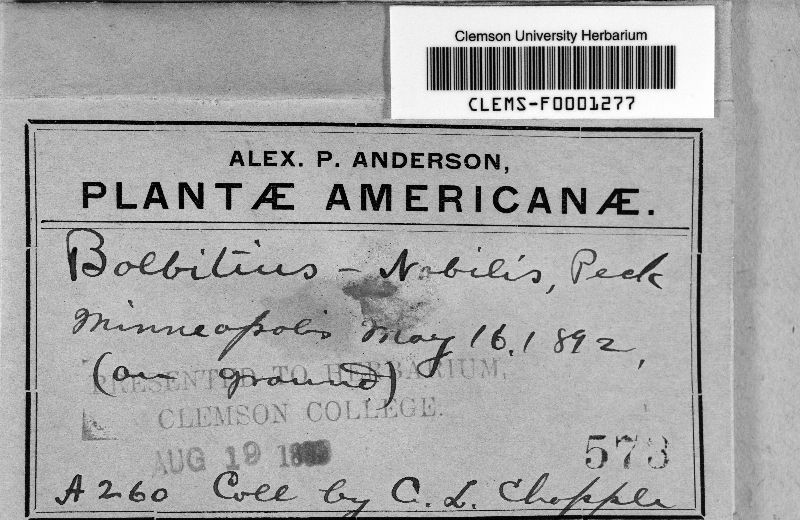 Clemson University Herbarium
CLEMS-F0001277
ALEX. P. ANDERSON,
PLANTÆ AMERICANÆ.
Bolbitius – Nobilis, Peck
Minneapolis May 16, 1892,
(on ground)
PRESENTED TO HERBARIUM,
CLEMSON COLLEGE.
AUG 19
573
A 260 Coll by C. L. Chopple